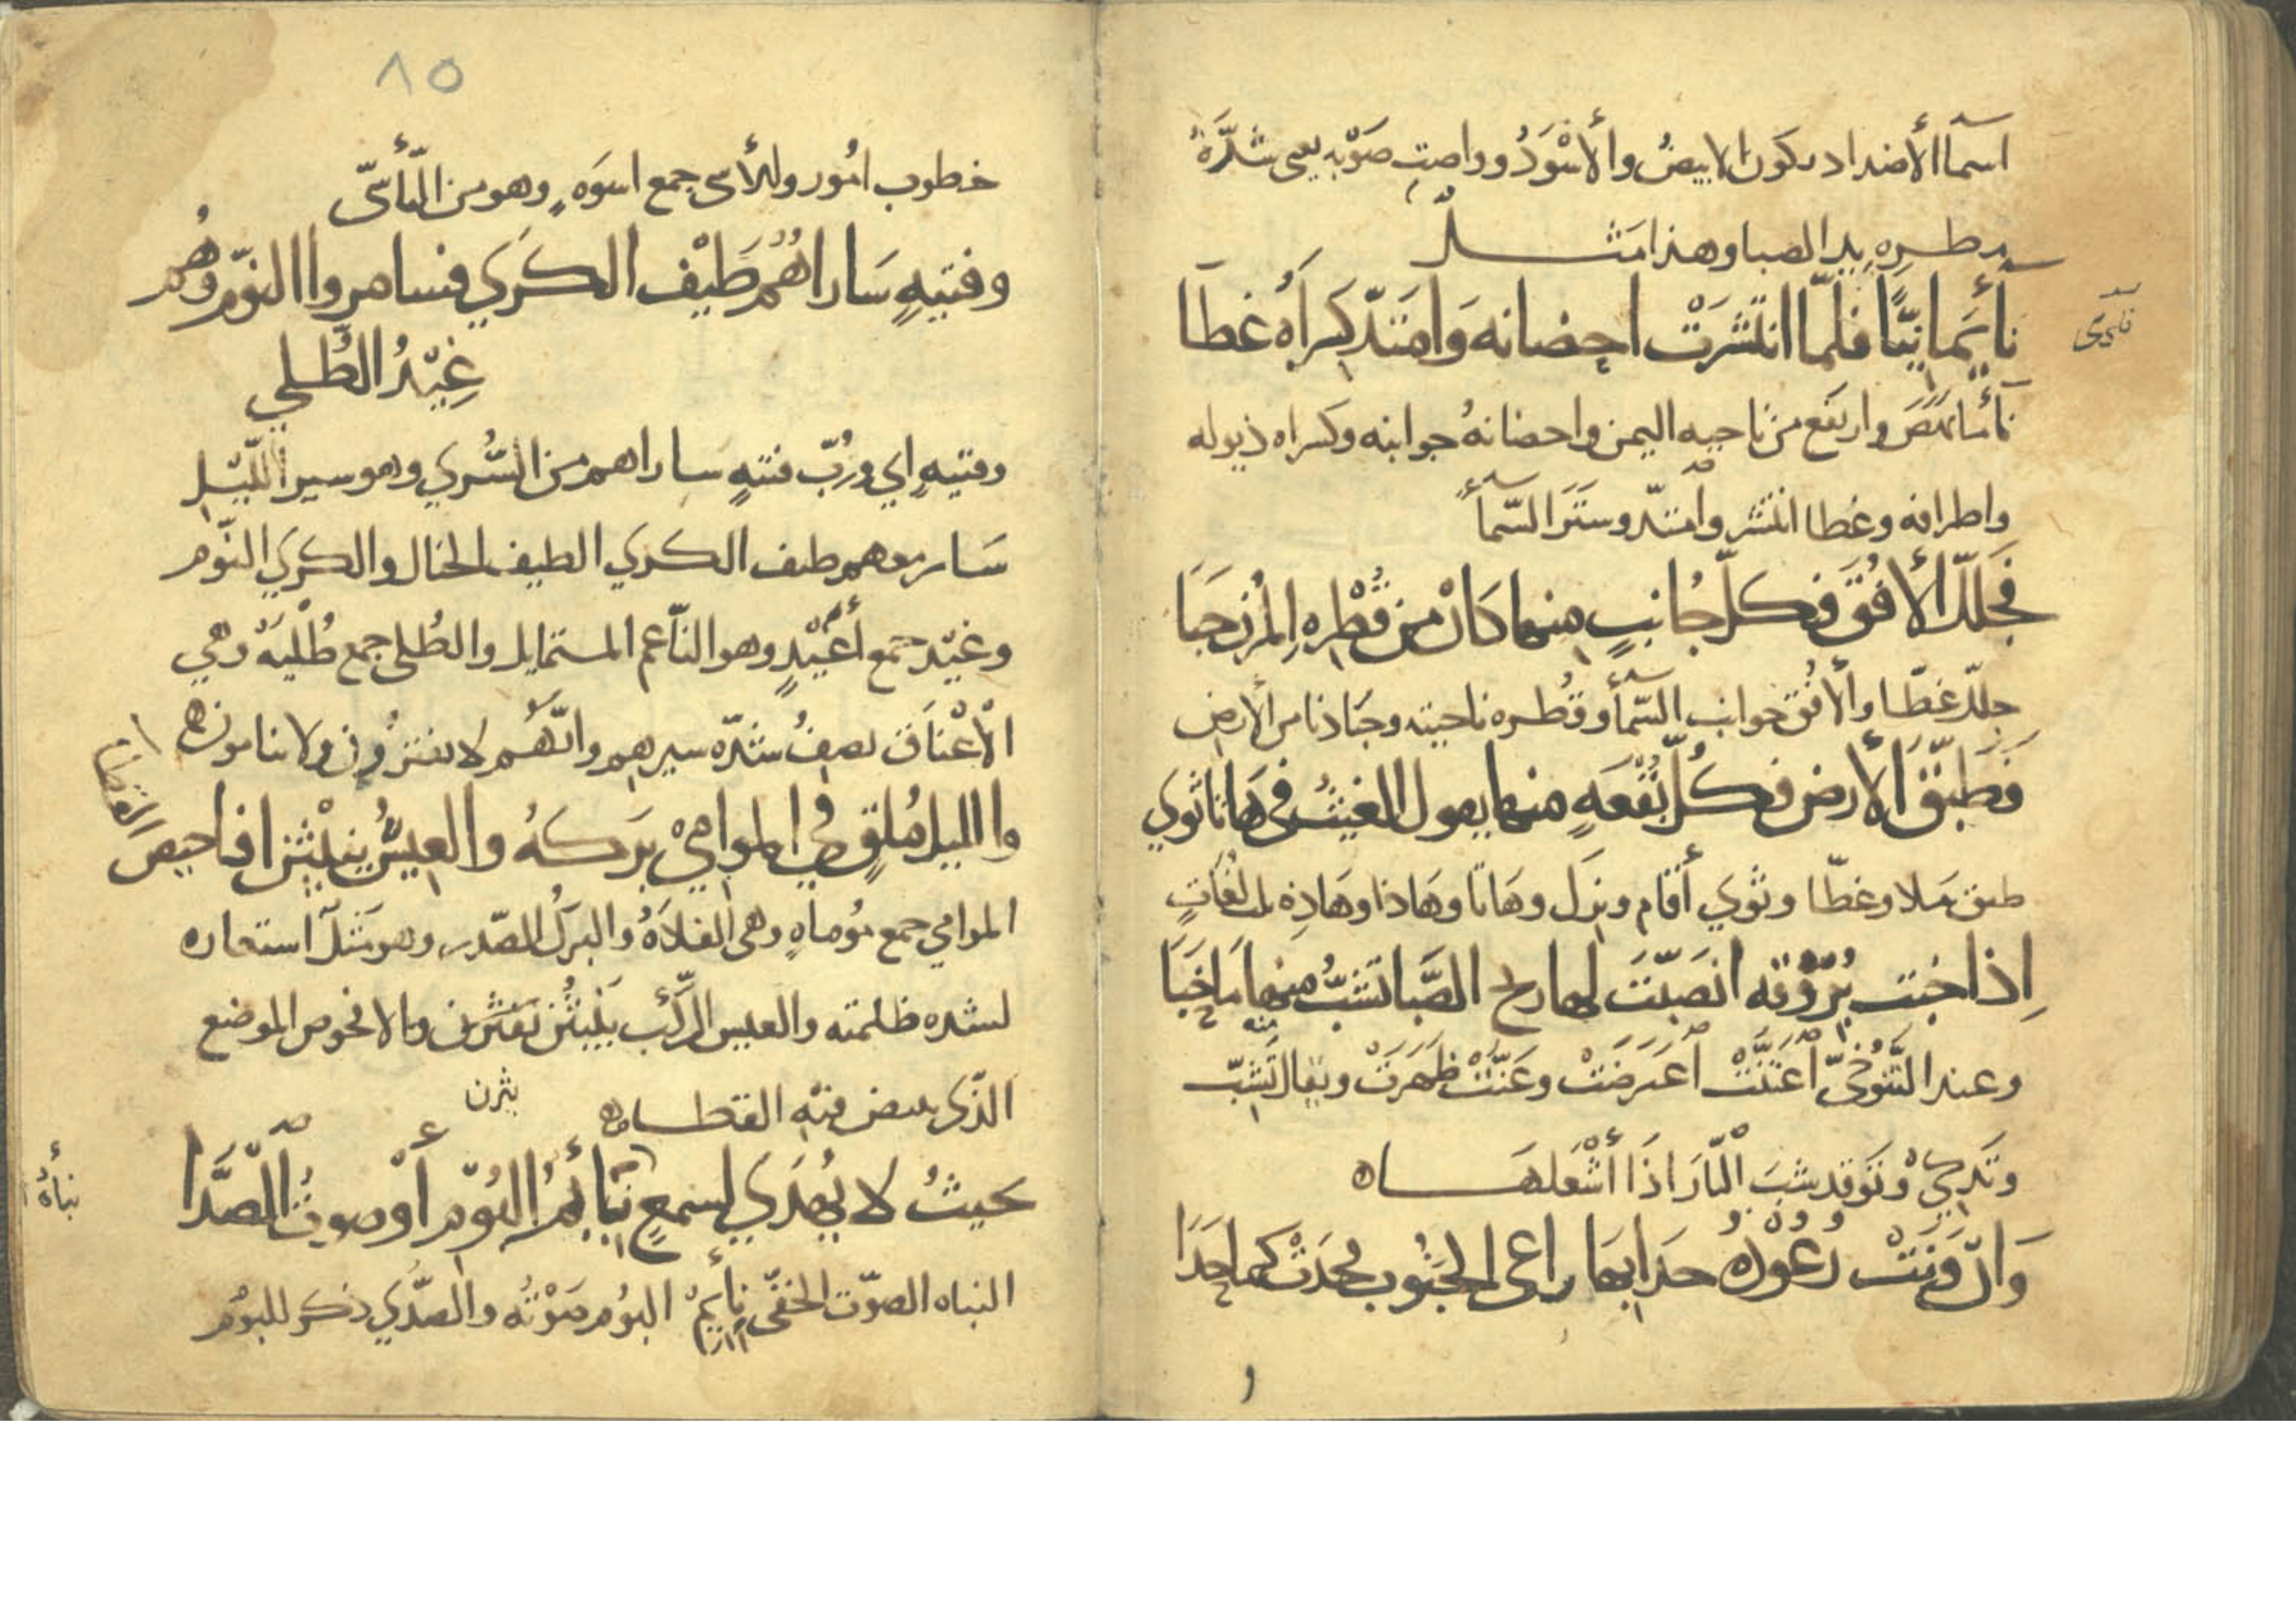 اسما الأضداد يكون الابيضُ والأسْوَدُ وواصت صَوْبه يعني شدَّة
مطره يد الصبا وهذا مَثَل
نأيَمانيًّا فلمّا انتشَرَتْ احضانه وَامتَدّ كِسَراه غطا
نأى نَهَضَ وارتفع من ناحيه اليمن واحضانهُ جوانبه وكسراه ذيوله
واطرافه وغطا انتشر وامتدّ وستَرَ السّمآء
فَجلَّلَ الأُفُقَ فكلّ جُانبٍ منها كانْ من قُطْرِهِ المُزن حَبَا
جلّلَ غطّا والأفُق جوانب السّمآء وقُطره ناحيته وحَبَا دنا من الأرض
فطبّقَ الأرض فكُلّ بُقْعَةٍ منها يقول الغيثُ في هَاتا ثوي
طبق مَلا وغطّا وثوي أقام ونزل وهَاتا وهَاذا وهَاذِه لغَات
اِذا خبت بُرُوْقُه انصَبّتَ لها ريح الصَّبا تَشبُّ منها ما خَبَا
وعند التَّنوُخيّ اعْتَنَّتْ اعترضَتْ وعَنَّتْ ظَهَرَتْ ويقال تَشبّ
وتَذكي وتَوقد شبَبَ النّارَ اذَا أشْعَلهَا
وَانْ وَنَتْ رُعُوْدُهُ حدَا بها راعى الجنُوب فحدَتْ كما حَدَا
نأى
٨٥
خطوب امُور وللأسى جمع اسوَهٍ وهو من التأسّى
وفتيهٍ سَاراهُمُ طَيْف الكَرَي فسامروا النوّم وهُم
غِيْدُ الطُّلي
وفتيهٍ اي ورُبّ فتيهٍ ساراهم من السُّري وهو سير اللّيْل
سَار معهم طيف الكري الطيف الخيال والكري النّوم
وغيْد جمع أغْيَدٍ وهو النّاعم المستمايل والطُلى جمع طُلْيَهْ وهي
الْأعْنَاق يصفُ شدّه سيرهم وانّهُم لا يفتروُن ولا ينامون
والليل مُلقٍ في الموامي بَركهُ والعِيسُ ينبثن افاحيص
القطا
الموامي جمع موُماهٍ وهى الفلاَهُ والبَركُ الصّدر وهو مَثلٌ استعاره
لشده ظلمته والعيس الرّكُب يَنْبثُن يَفتشن والافحوص الموضع
الذّي يبيض فيْه القطا
يثرن
بحيثُ لا يُهدَي لسمعٍ نبأيمُ البُوم أوْ صوتُ الصَّدَا
نبأةُ
النباه الصوّت الخفّى نايمُ البُوم صَوْتُه والصدَّي ذكر للبُوم